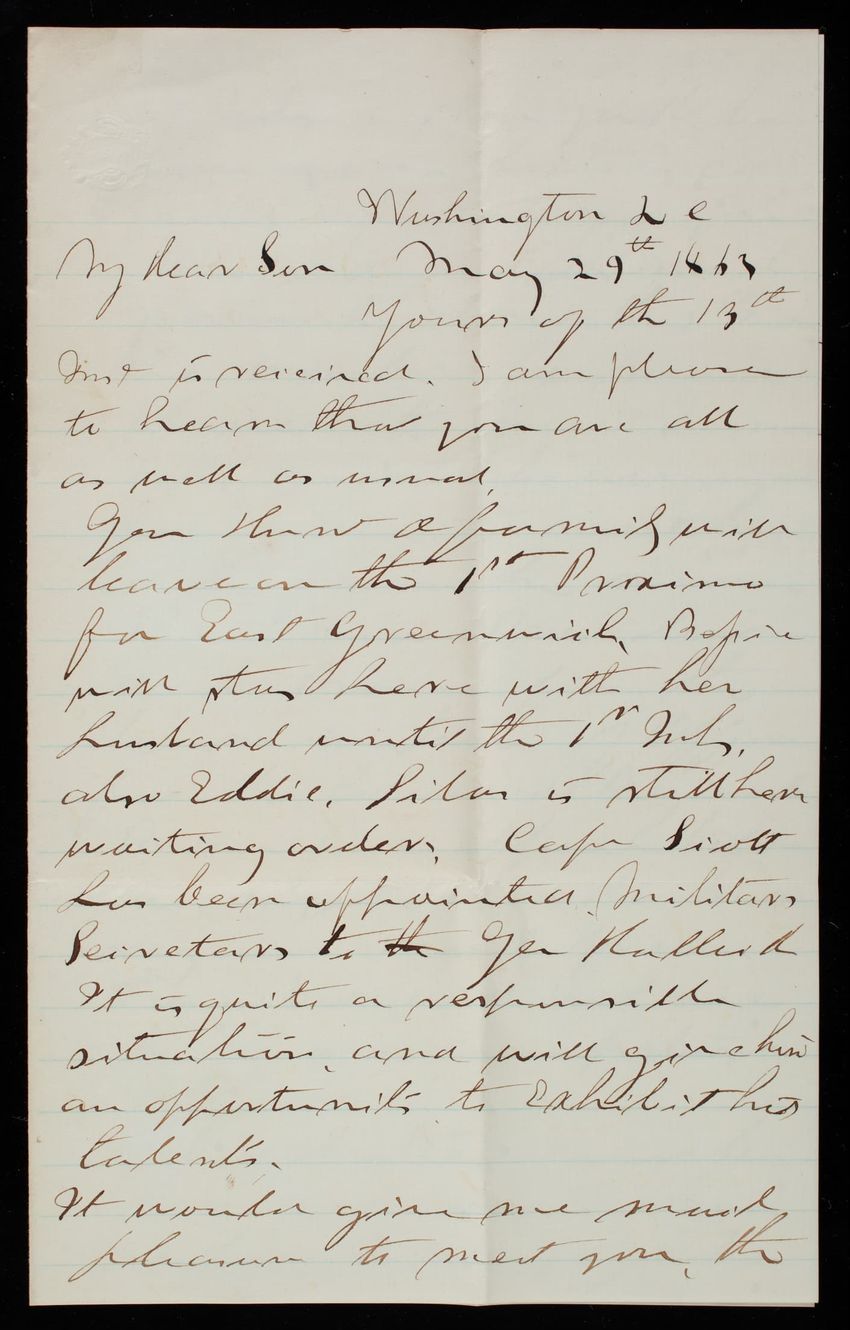 Washington D C
My dear Son May 29th 1863
Yours of the 13th
Inst is received. I am please
to hear that you are all
as well as usual.
Gen & family will
leave on the 1st Proximo
for East Greenwich, Bessie
will stay here with her
husband until the 1st July,
also Eddie. Silas is still here
waiting orders. Capt Scott
has been appointed Military
Secretary to the Gen Halleck
It is quite a responsible
situation, and will give him
an opportunity to Exhibit his
talents.
It would give me much
pleasure to meet you, the